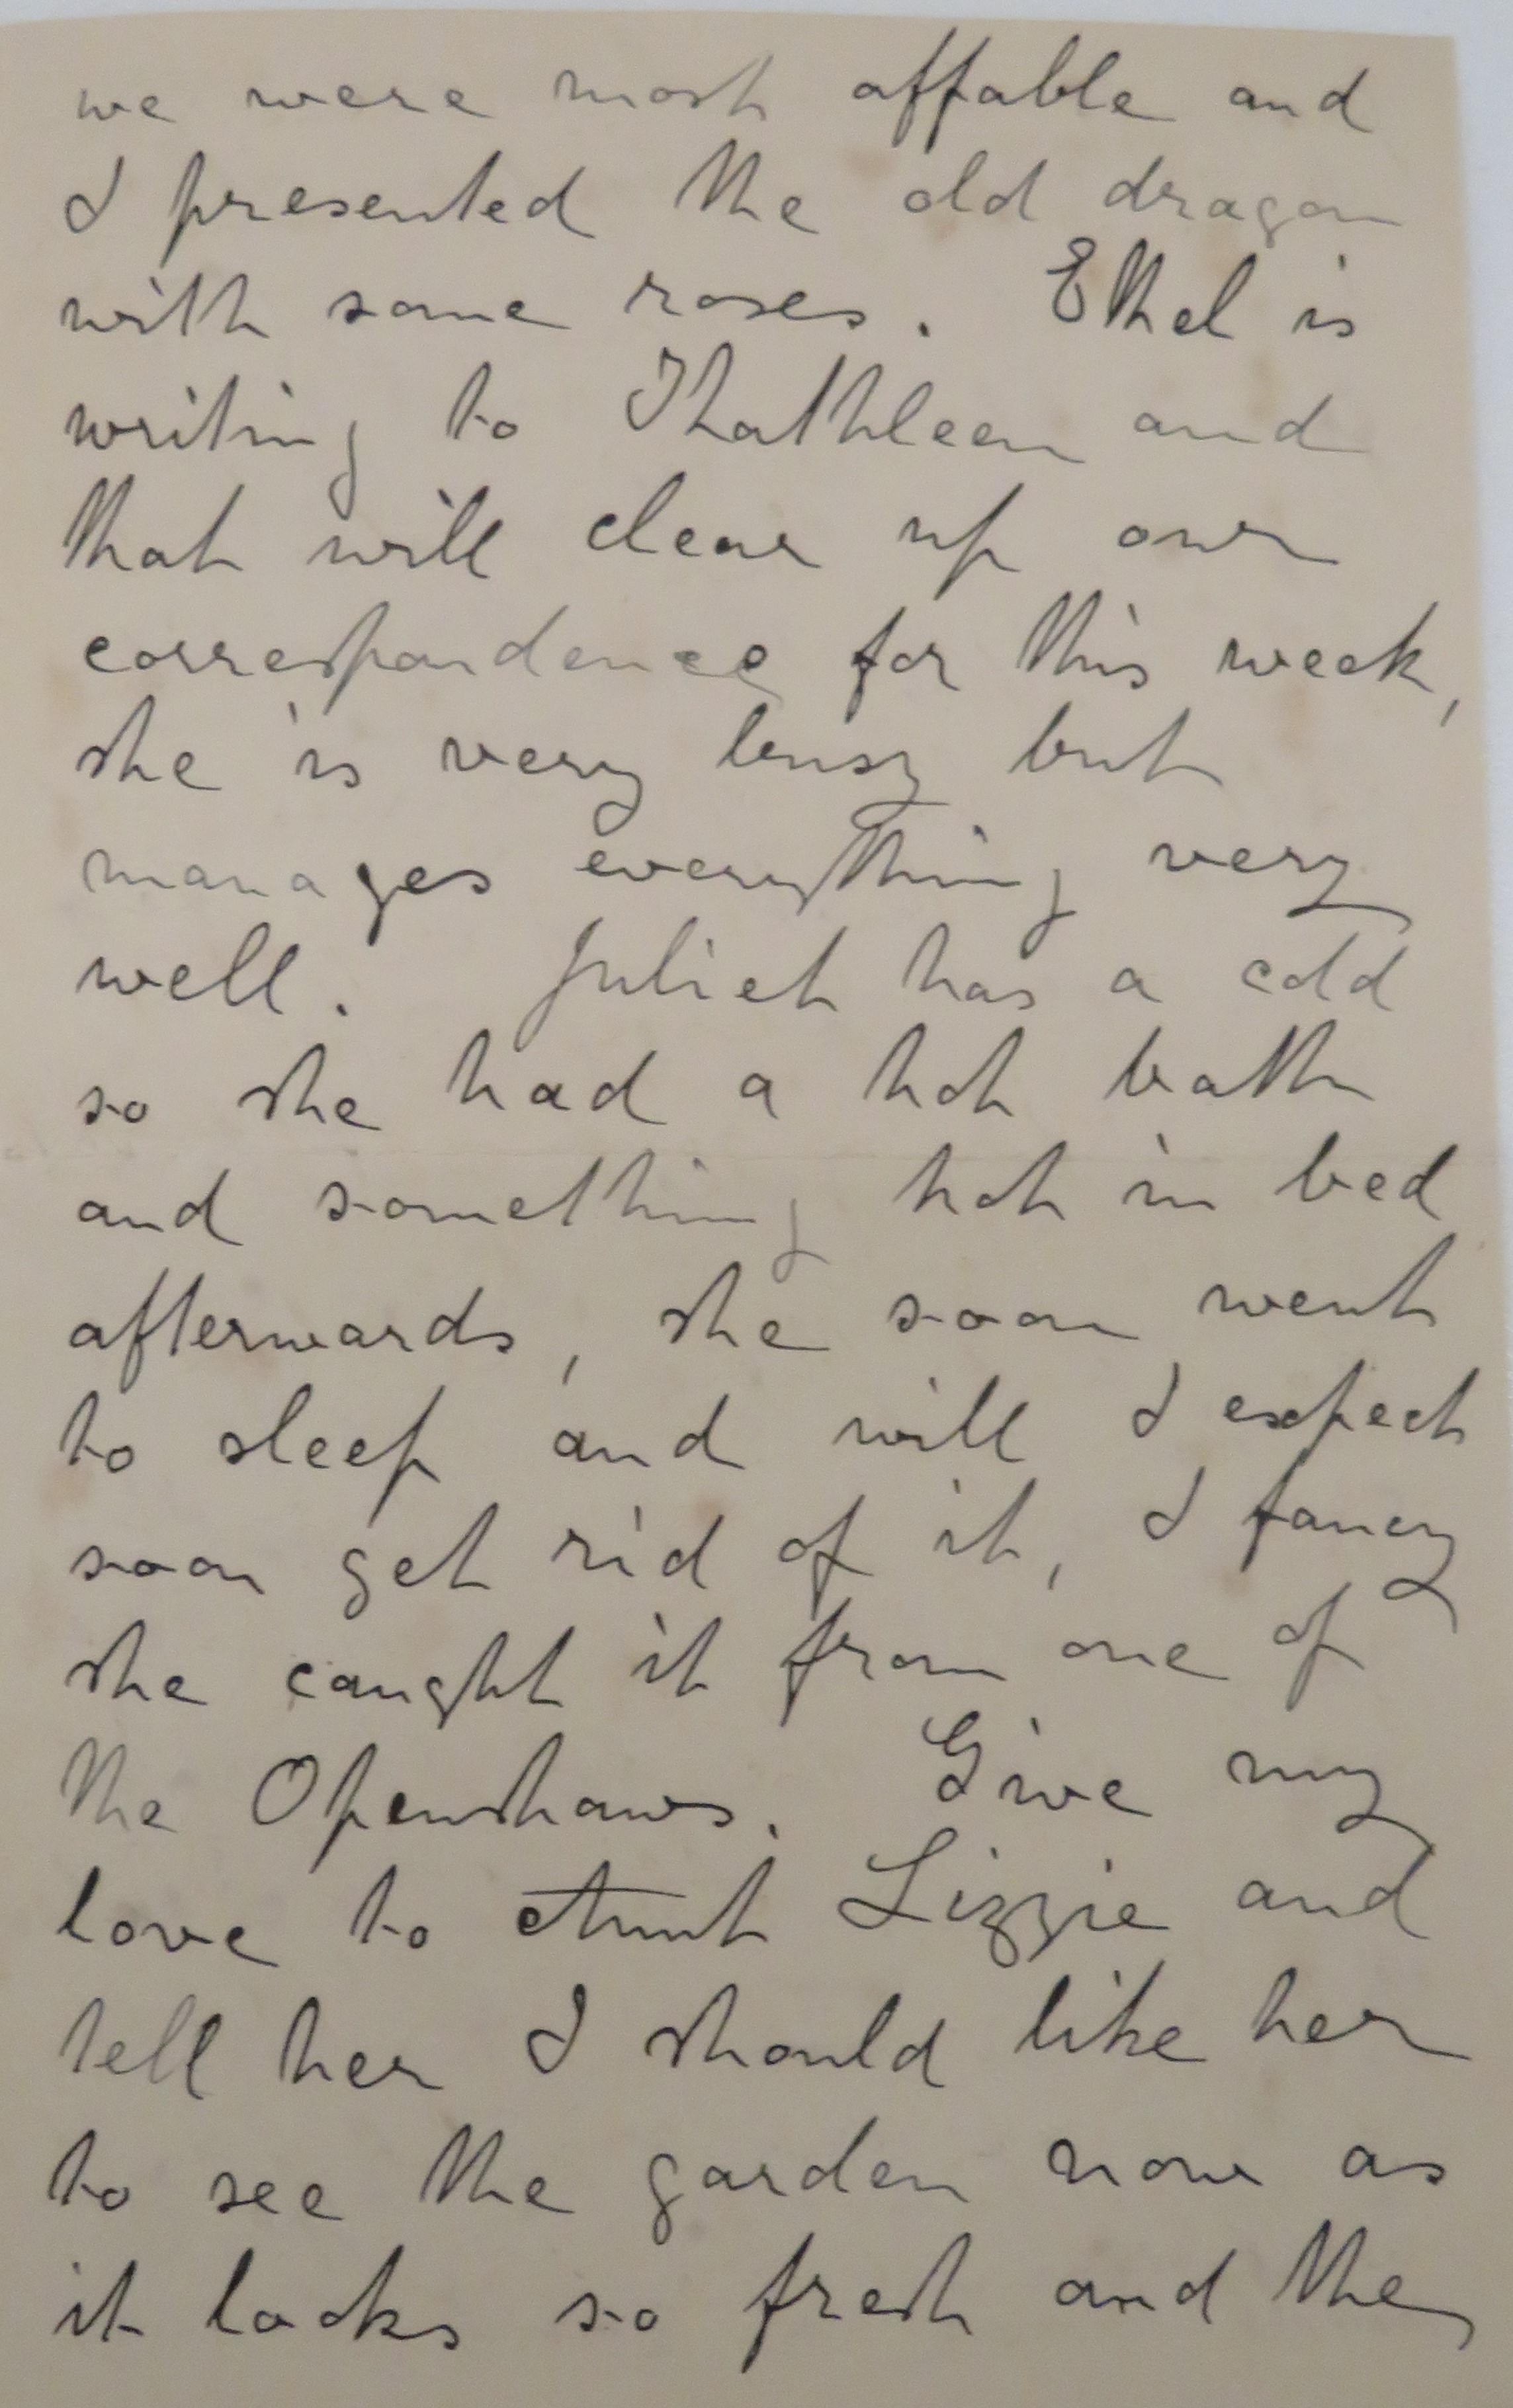 we were most affable and
I presented the old dragon
with some roses. Ethel is
writing to Khathleen and
that will clear up our
correspondence for this week,
she is very busy but
manages everything very
well. Juliet has a cold
so she had a hot bath
and something hot in bed
afterwards, she soon went
to sleep and will I expect
soon get rid of it, I fancy
she caught it from one of
the Openshaws. Give my
love to Aunt Lizzie and
tell her I should like her
to see the garden now as
it looks so fresh and the